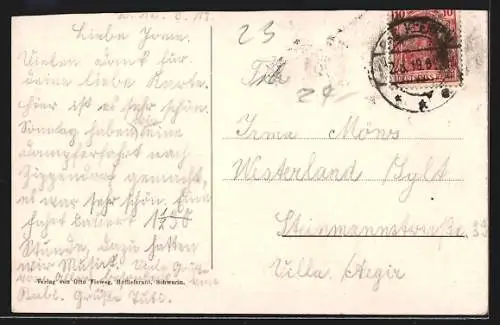 Liebe Irma.
Vielen Dank für
deine liebe Karte.
Hier ist es sehr schön.
Sonntag haben eine
Dampferfahrt nach
Zippendorf gemacht,
es war sehr schön. Eine
Fahrt dauert 1½
Stunde, dazu hatten
wir Musik. Viele Grüße
Grüße
Verlag von Otto Vieweg, Hoflieferant, Schwerin.
23
Frl.
24-
Irma Möws
Westerland Sylt
Steinmannstraße 39
Villa Aegir
10